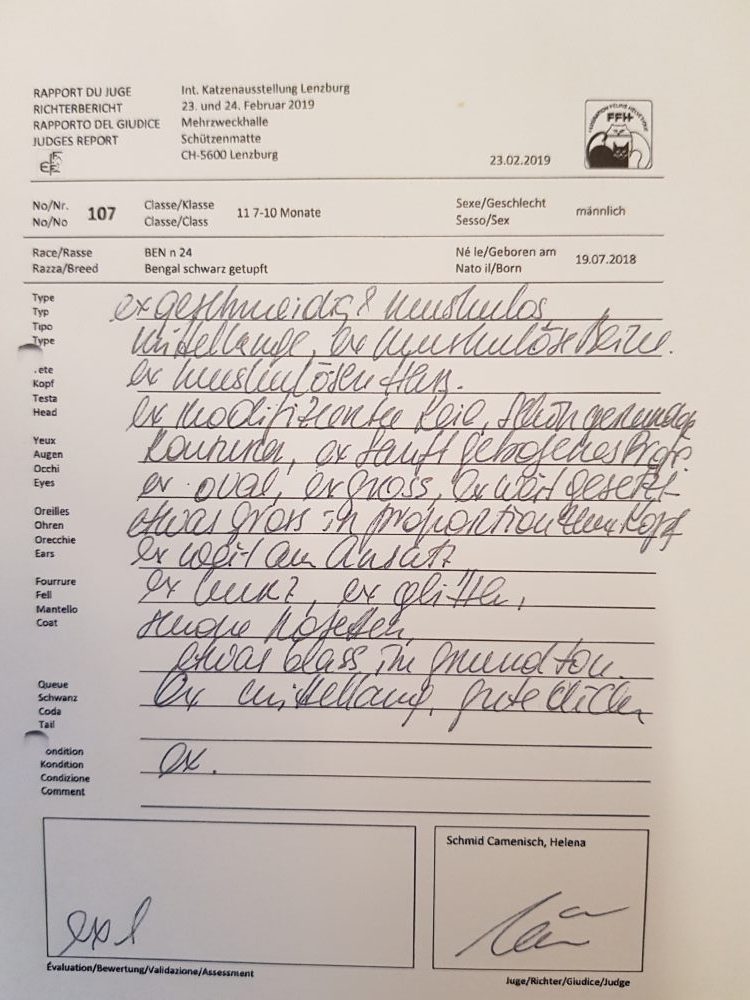 RAPPORT DU JUGE
RICHTERBERICHT
RAPPORTO DEL GIUDICE
JUDGES REPORT
Int. Katzenausstellung Lenzburg
23. und 24. Februar 2019
Mehrzweckhalle
Schützenmatte
CH-5600 Lenzburg
23.02.2019
FFH
No/Nr.
No/No
107
Classe/Klasse
Classe/Class
11 7-10 Monate
Sexe/Geschlecht
Sesso/Sex
männlich
Race/Rasse
Razza/Breed
BEN n 24
Bengal schwarz getupft
Né le/Geboren am
Nato il/Born
19.07.2018
Type
Typ
Tipo
Type
ex geschmeidig & muskulös
mittellange, ex muskulöse Beine.
ex muskulösen Hals.
.ete
Kopf
Testa
Head
ex modifizierter Keil, schön gerundete
Konturen, ex sanft gebogenes Prof.
Yeux
Augen
Occhi
Eyes
ex oval, ex gross, ex weit gesetzt
Oreilles
Ohren
Orecchie
Ears
etwas gross in proportion zum Kopf
ex weit am Ansatz
Fourrure
Fell
Mantello
Coat
ex kurz, ex glitter,
Rosetten,
etwas blass im grundton.
Queue
Schwanz
Coda
Tail
ex mittellang, gute dicke
ondition
Kondition
Condizione
Comment
ex.
ex 1
Évaluation/Bewertung/Validazione/Assessment
Schmid Camenisch, Helena
Juge/Richter/Giudice/Judge